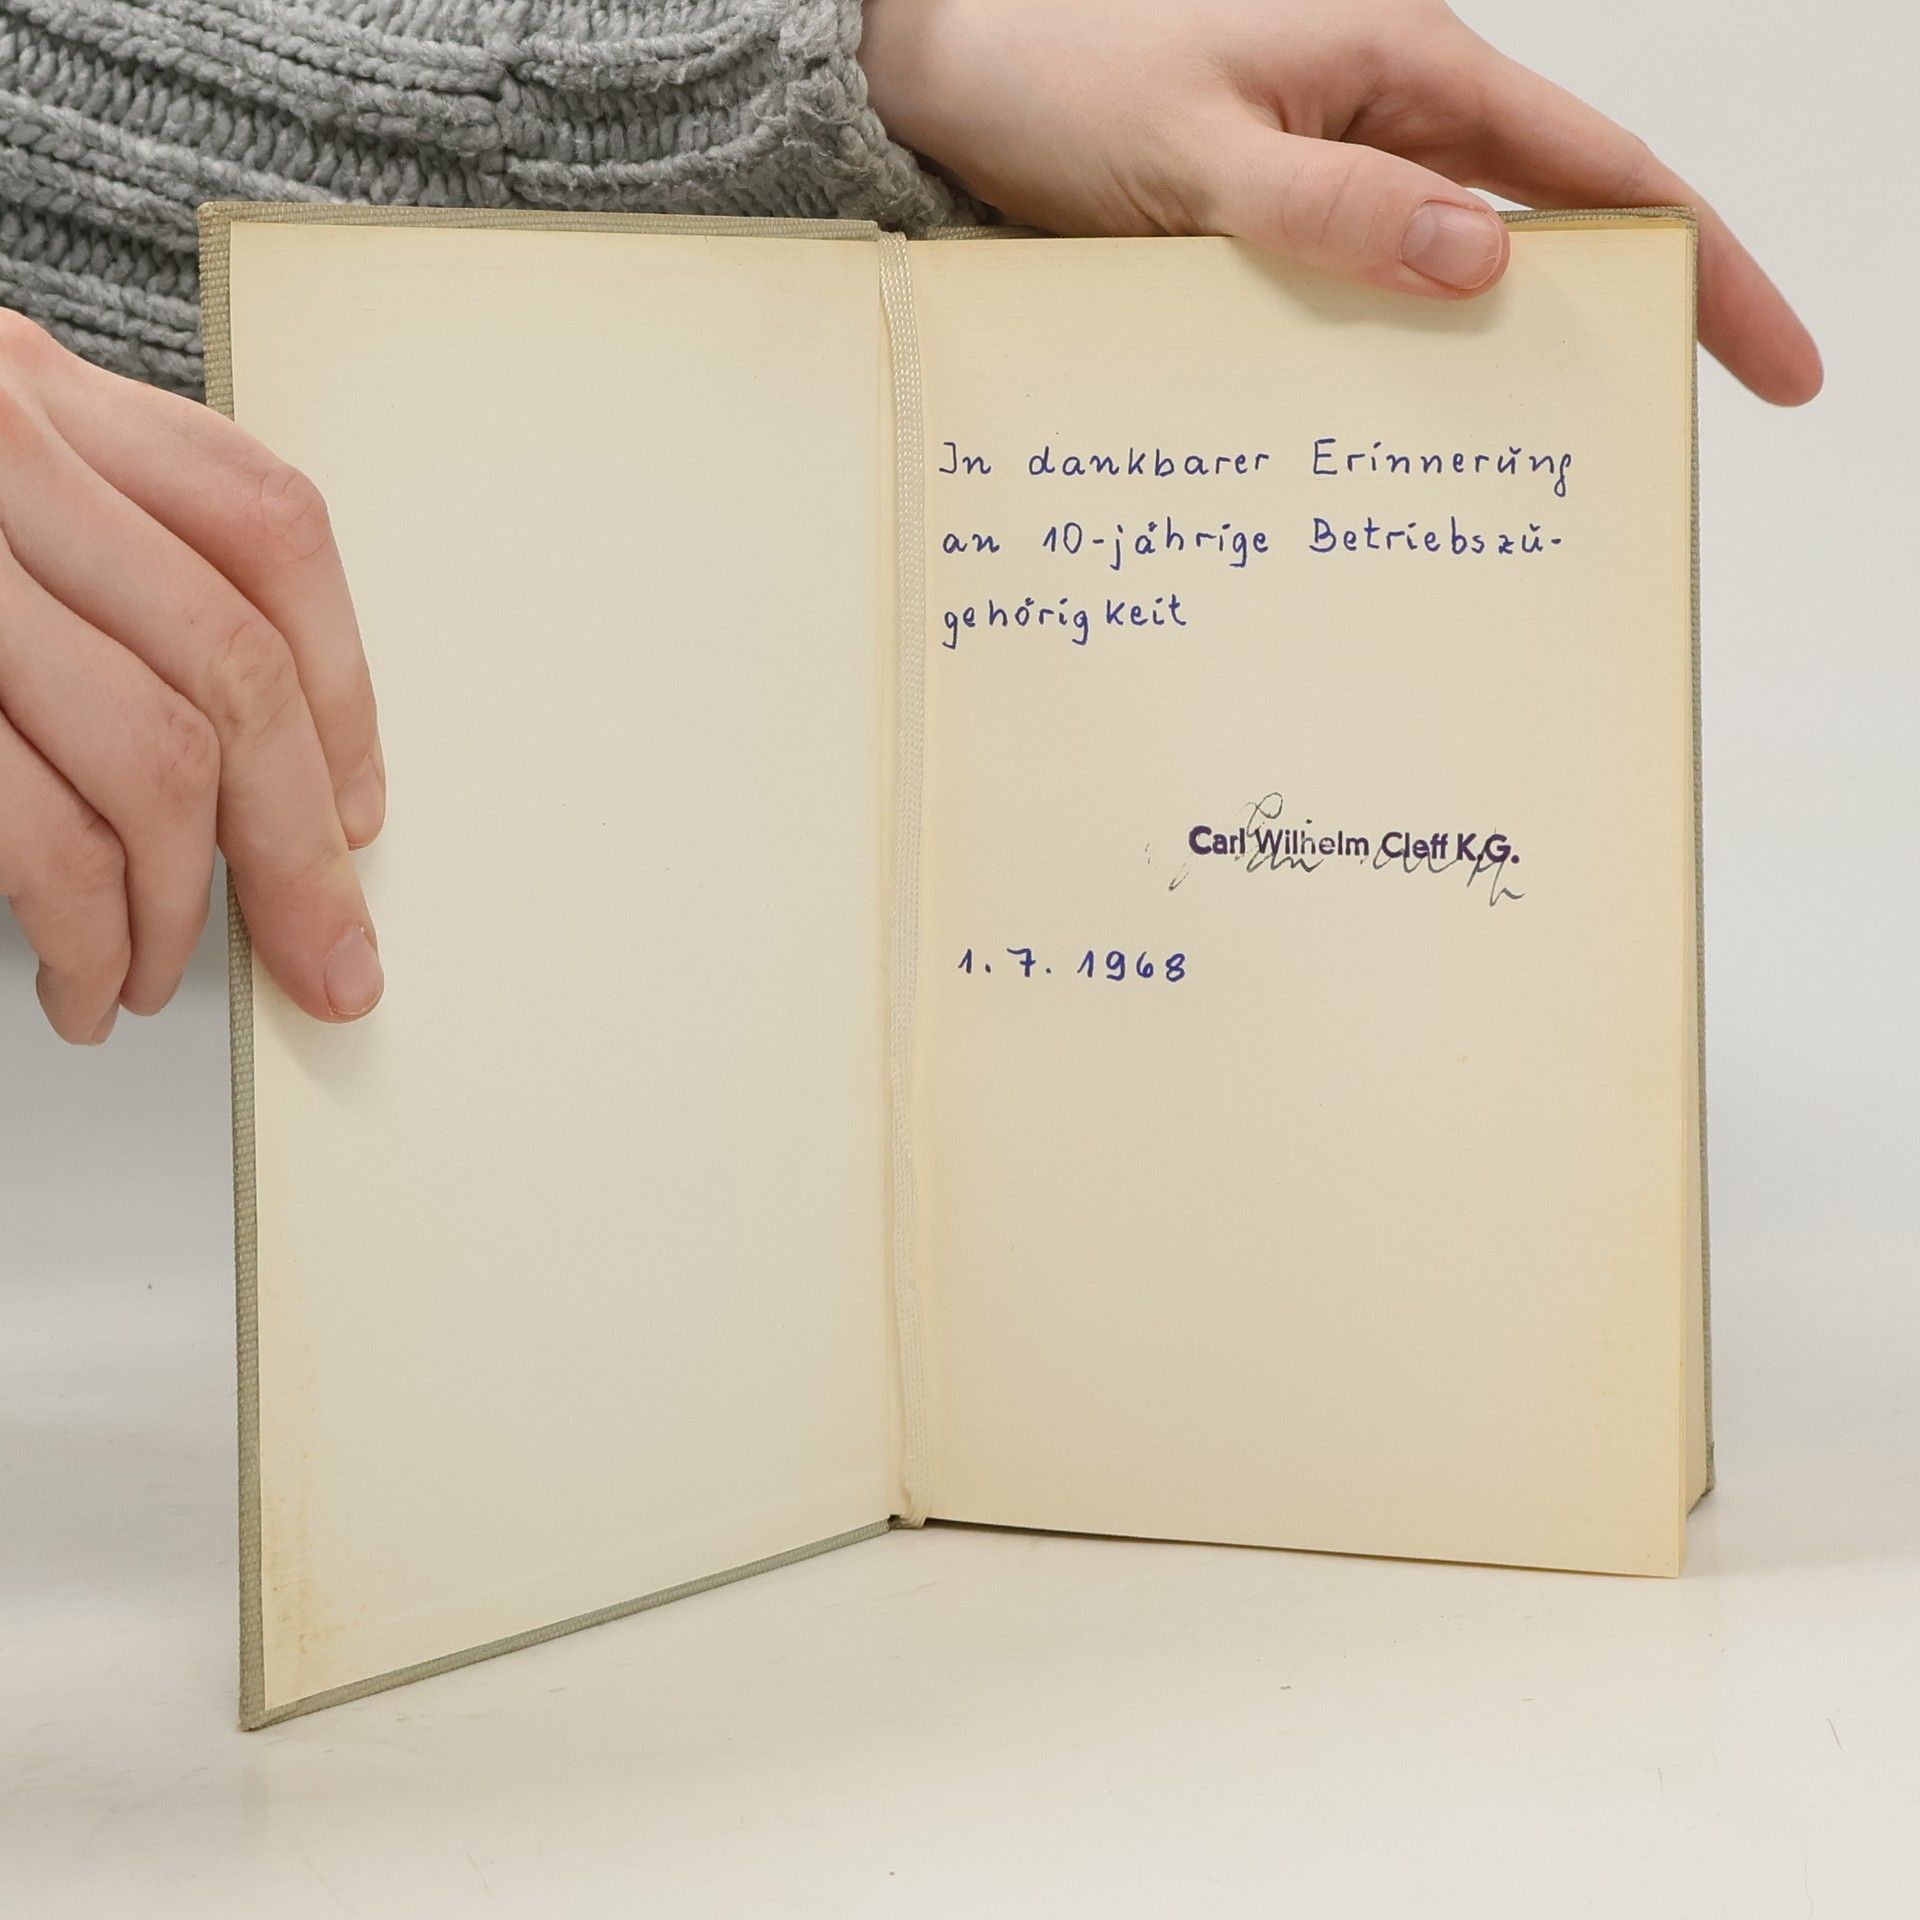 In dankbarer Erinnerung
an 10-jährige Betriebszu-
gehörigkeit
Carl Wilhelm Cleff K.G.
1. 7. 1968